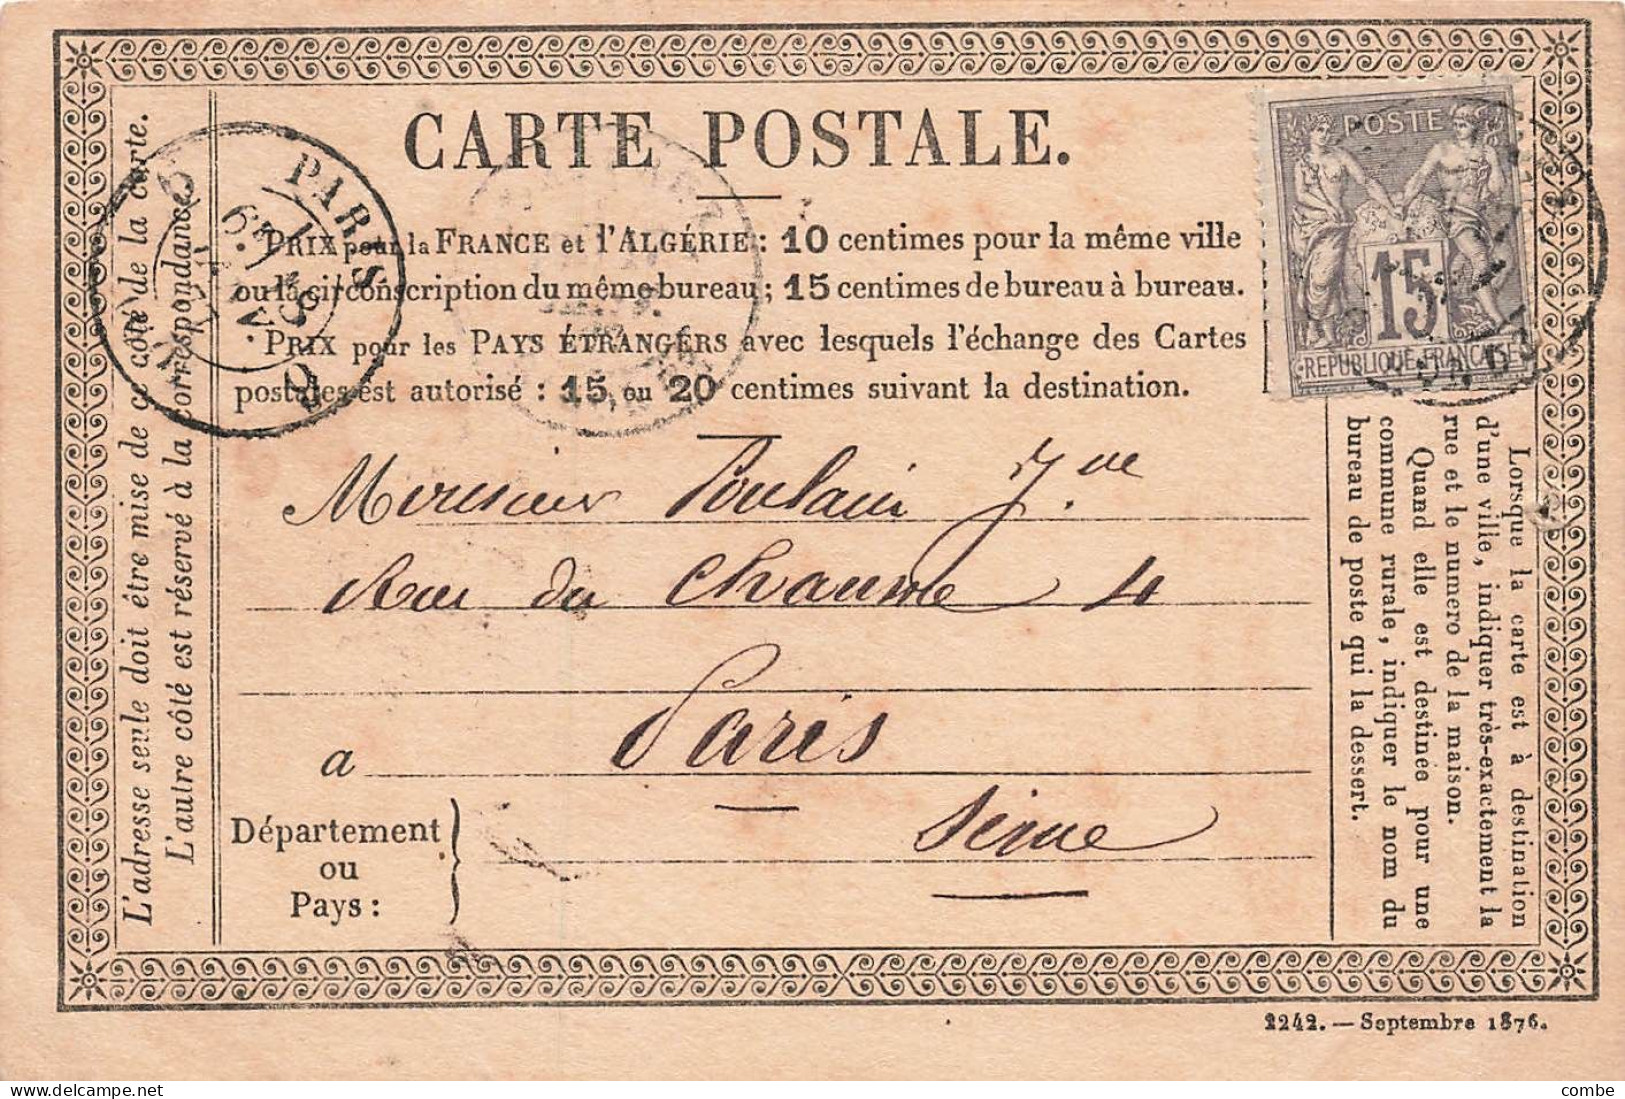 CARTE POSTALE.
PRIX pour la FRANCE et l'ALGÉRIE : 10 centimes pour la même ville
ou la circonscription du même bureau ; 15 centimes de bureau à bureau.
PRIX pour les PAYS ÉTRANGERS avec lesquels l'échange des Cartes
postales est autorisé : 15 ou 20 centimes suivant la destination.
POSTE
15
REPUBLIQUE FRANÇAISE
PARIS
6E
18
Messieurs Poulain Jne
Rue du Chaume 4
a Paris
Département
ou
Pays :
Seine
L'adresse seule doit être mise de ce côté de la carte.
L'autre côté est réservé à la correspondance.
Lorsque la carte est à destination
d'une ville, indiquer très-exactement la
rue et le numero de la maison.
Quand elle est destinée pour une
commune rurale, indiquer le nom du
bureau de poste qui la dessert.
2242. — Septembre 1876.
combe